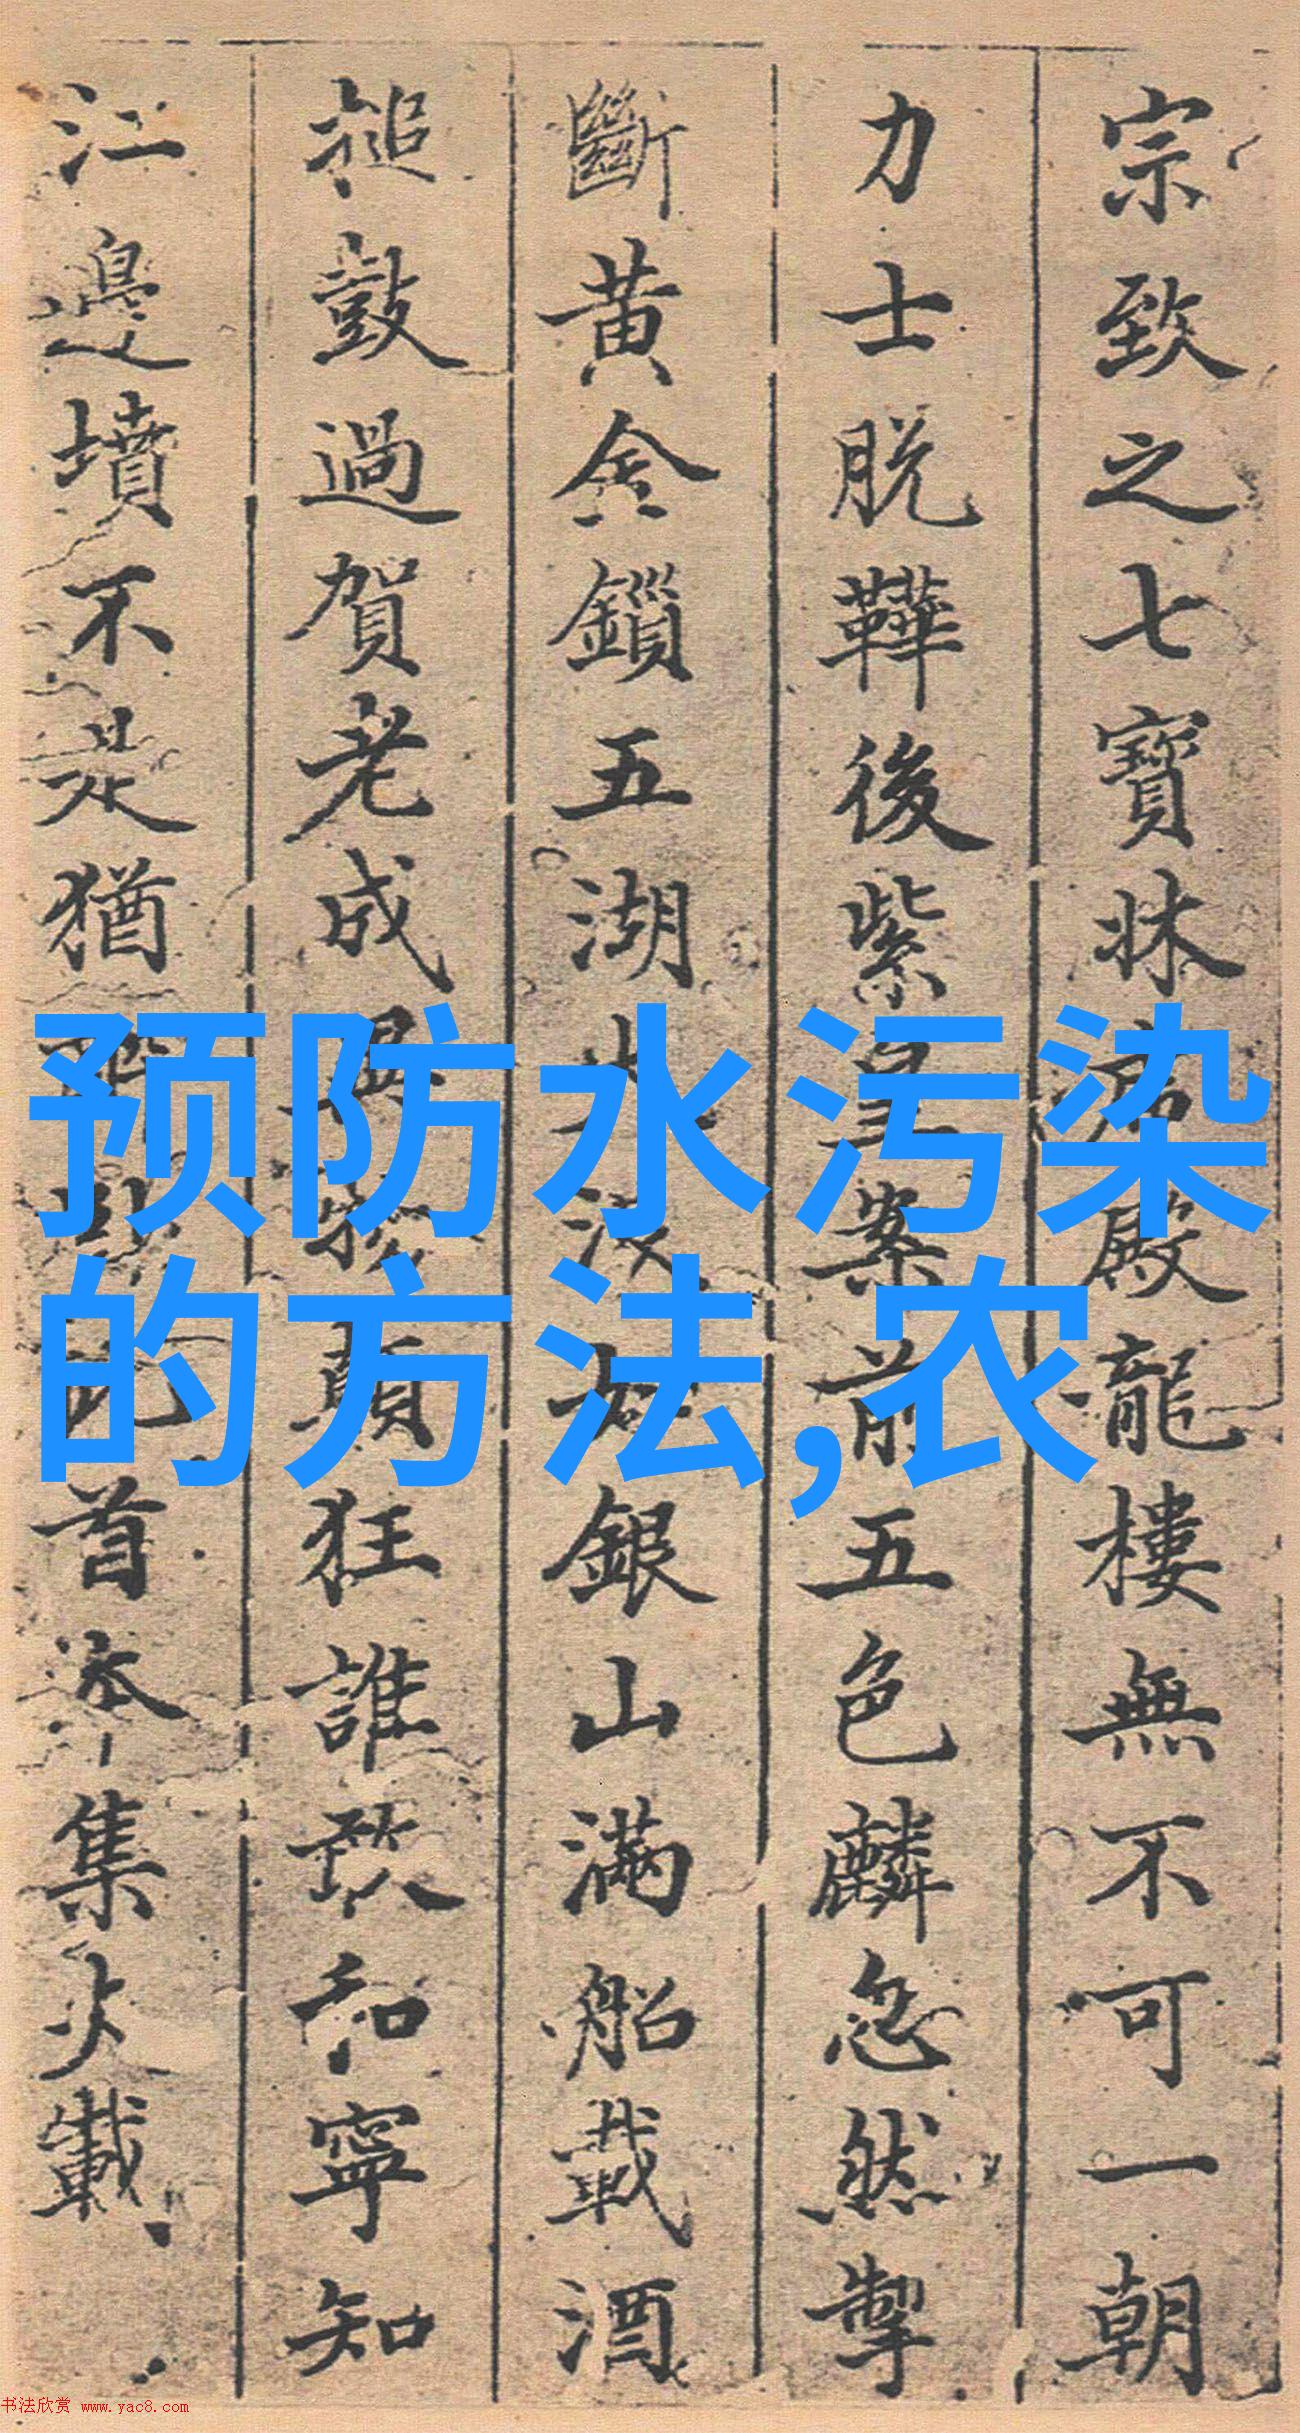 宗致之七寶牀
殿龍樓無不可一朝
力士脱鞾後紫皇案前五色麟忽然掣
斷黄金鎖五湖
銀山滿船載酒
搥鼓過賀老成
顛狂誰敢和寧知
江邊墳不是猶
首本集少載
预防水污染
的方法,农
书法欣赏 www.yac8.com